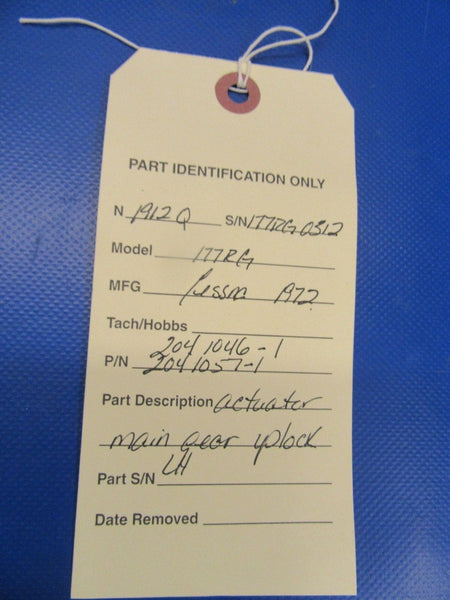 PART IDENTIFICATION ONLY
N 1912Q S/N 177RG0312
Model 177RG
MFG Cessna 1972
Tach/Hobbs
2041046-1
P/N 2041057-1
Part Description actuator
main gear uplock
LH
Part S/N
Date Removed